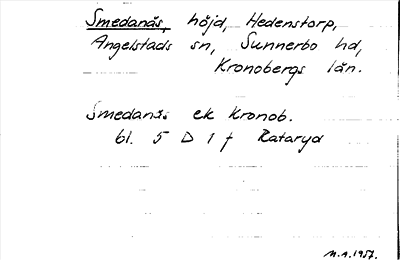 Smedanäs, höjd, Hedenstorp,
Angelstads sn, Sunnerbo hd,
Kronobergs län.
Smedanäs ek Kronob.
bl. 5 D 1 f Rataryd
M.A.1957.